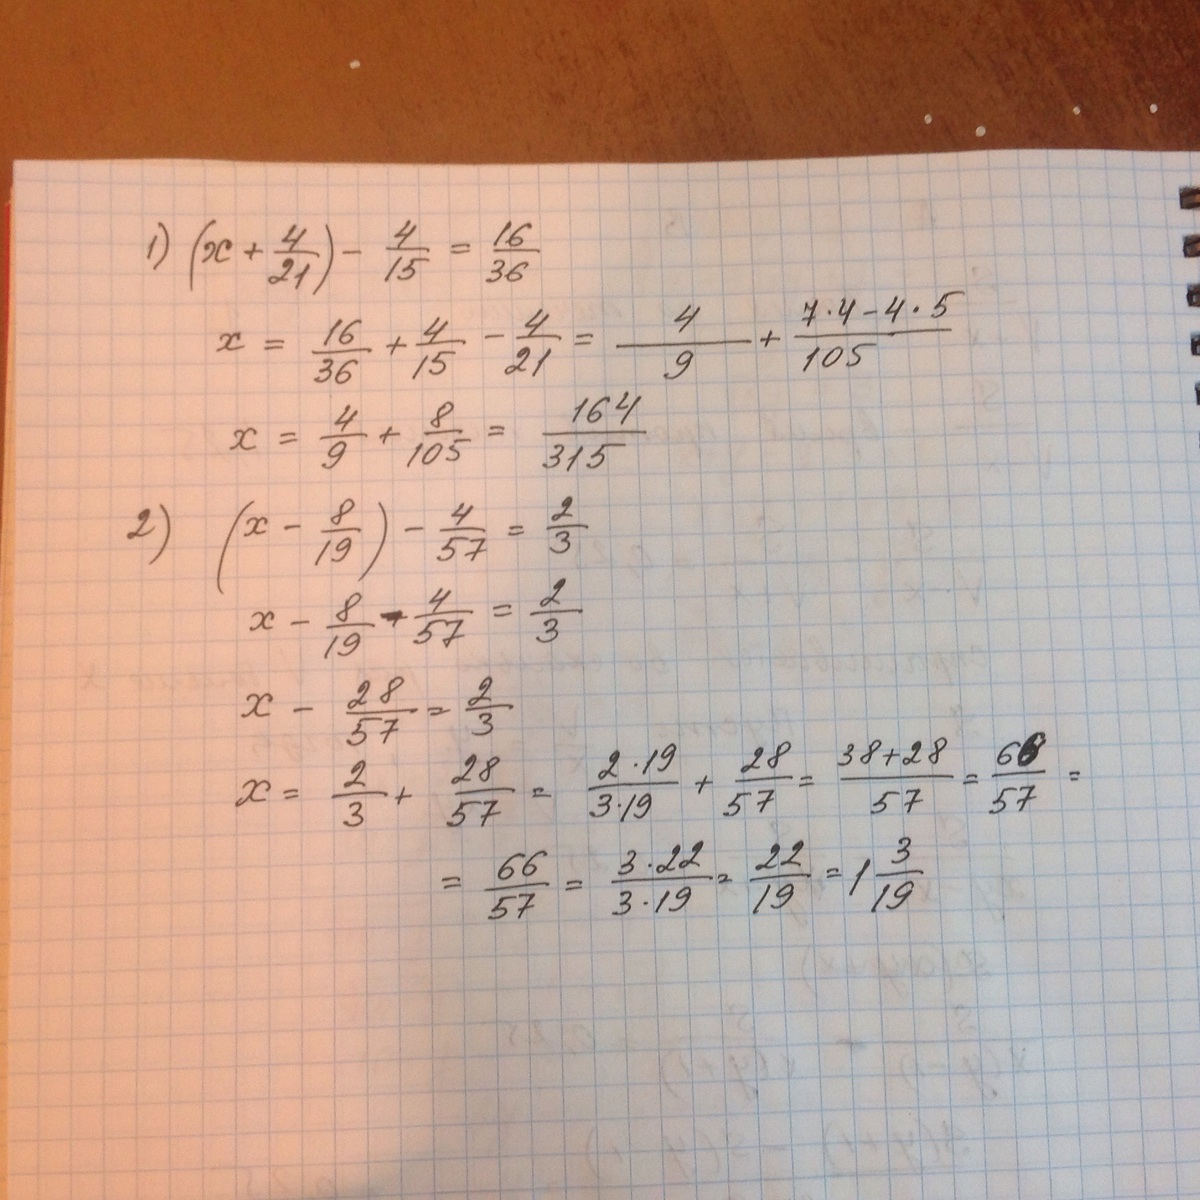 1) (x + 4/21) - 4/15 = 16/36
x = 16/36 + 4/15 - 4/21 = 4/9 + 7·4-4·5/105
x = 4/9 + 8/105 = 164/315
2) (x - 8/19) - 4/57 = 2/3
x - 8/19 - 4/57 = 2/3
x - 28/57 = 2/3
x = 2/3 + 28/57 = 2·19/3·19 + 28/57 = 38+28/57 = 66/57 =
= 66/57 = 3·22/3·19 = 22/19 = 1 3/19